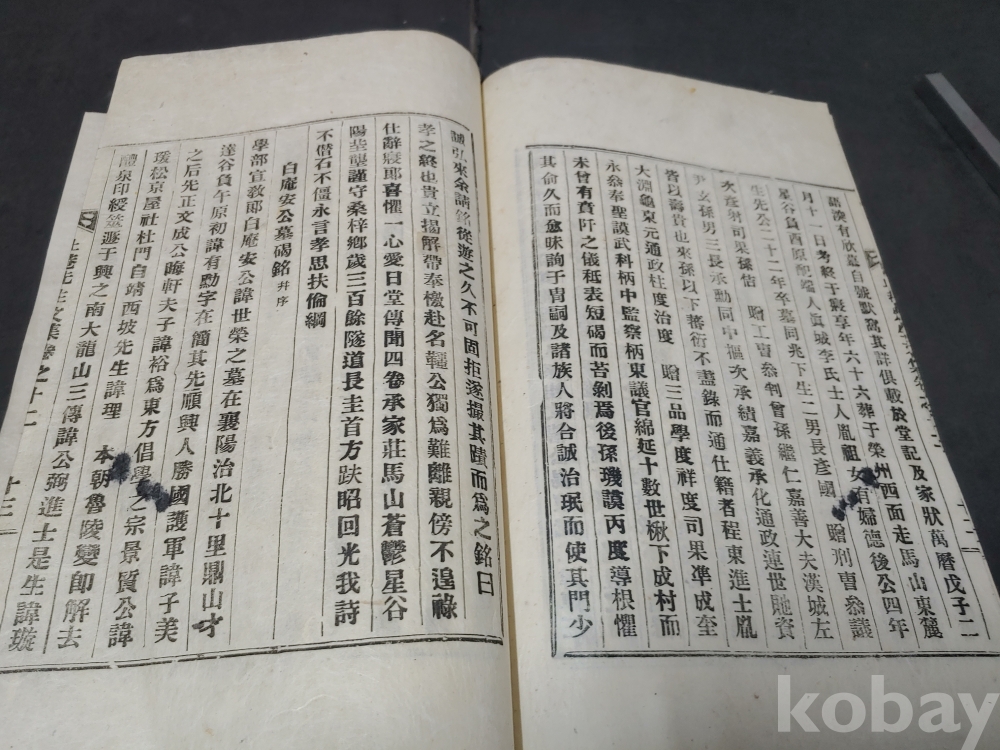 月十一日考終于寢享年六十六葬于榮州西面走馬山東麓
星谷負酉原配端人眞城李氏士人胤祖女有婦德後公四年
生先公二十二年卒墓同兆下生二男長彥國 贈刑曹叅議
次彥弼司果孫悎 贈工曹叅判曾孫繼仁嘉善大夫漢城左
尹玄孫男三長承勳同中樞次承績嘉義承化通政連世貤資
皆以海貴也來孫以下蕃衍不盡錄而通仕籍者程東進士胤
大淵龜東元通政柱度治度 贈三品學度祥度司果準成奎
永叅奉聖謨武科柄中監察柄東議官綿延十數世楸下成村而
未曾有賁阡之儀秪表短碣而苔剝焉後孫璣謨丙度導根懼
其俞久而愈昧詢于冑嗣及諸族人將合誠治珉而使其門少
弘來余請銘從遊之久不可固拒遂撮其蹟而爲之銘曰
孝之終也貴立揚解帶奉檄赴名韁公獨爲難離親傍不遑祿
仕辭寢喜懼一心愛日堂傳聞四卷承家莊馬山蒼鬱星谷
陽塋壟謹守桑梓鄕歲三百餘隧道長圭首方趺昭回光我詩
不僭石不僵永言孝思扶倫綱
白庵安公墓碣銘 幷序
學部宣敎郞白庵安公諱世榮之墓在襄陽治北十里鼎山
達谷負午原初諱有勳字在簡其先順興人勝國護軍諱子美
之后先正文成公晦軒夫子諱裕爲東方倡學之宗景質公諱
瑗松京屋社杜門自靖西坡先生諱理 本朝魯陵變卽解去
醴泉印綬筮遯于興之南大龍山三傳諱公弼進士是生諱璇
先生文集卷之十二 十三